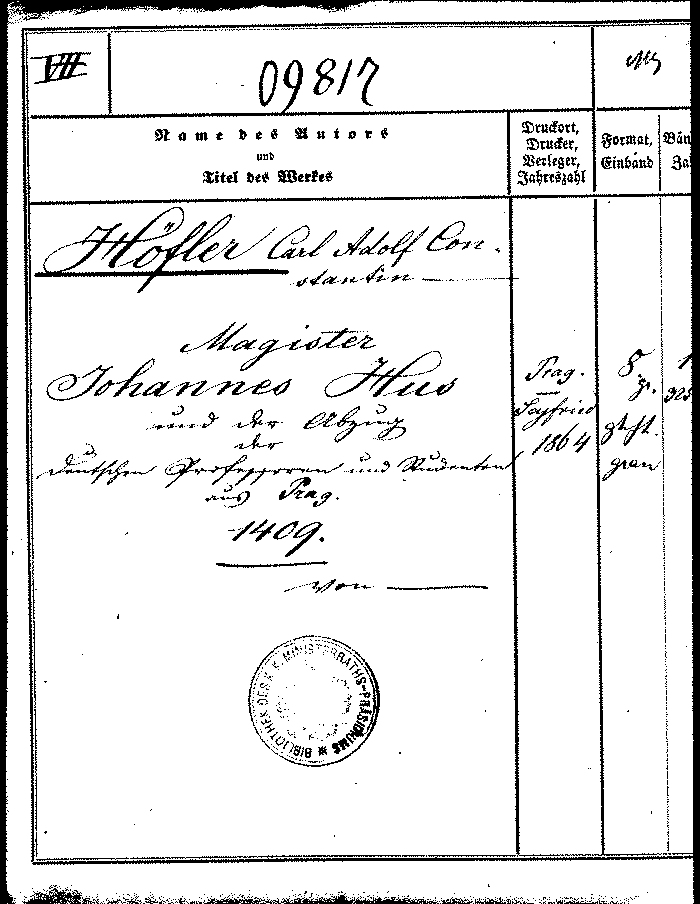 VII
09817
Name des Autors
und
Titel des Werkes
Druckort,
Drucker,
Verleger,
Jahreszahl
Format,
Einband
Bän
Ja
Höfler Carl Adolf Con-
stantin
Magister
Johannes Hus
und der Abzug
der
deutschen Professoren und Studenten
aus Prag.
1409.
von
Prag.
1864
8
gr.
geht.
grau
BIBLIOTHEK DES K. K. MINISTERRATHS-PRÄSIDIUMS